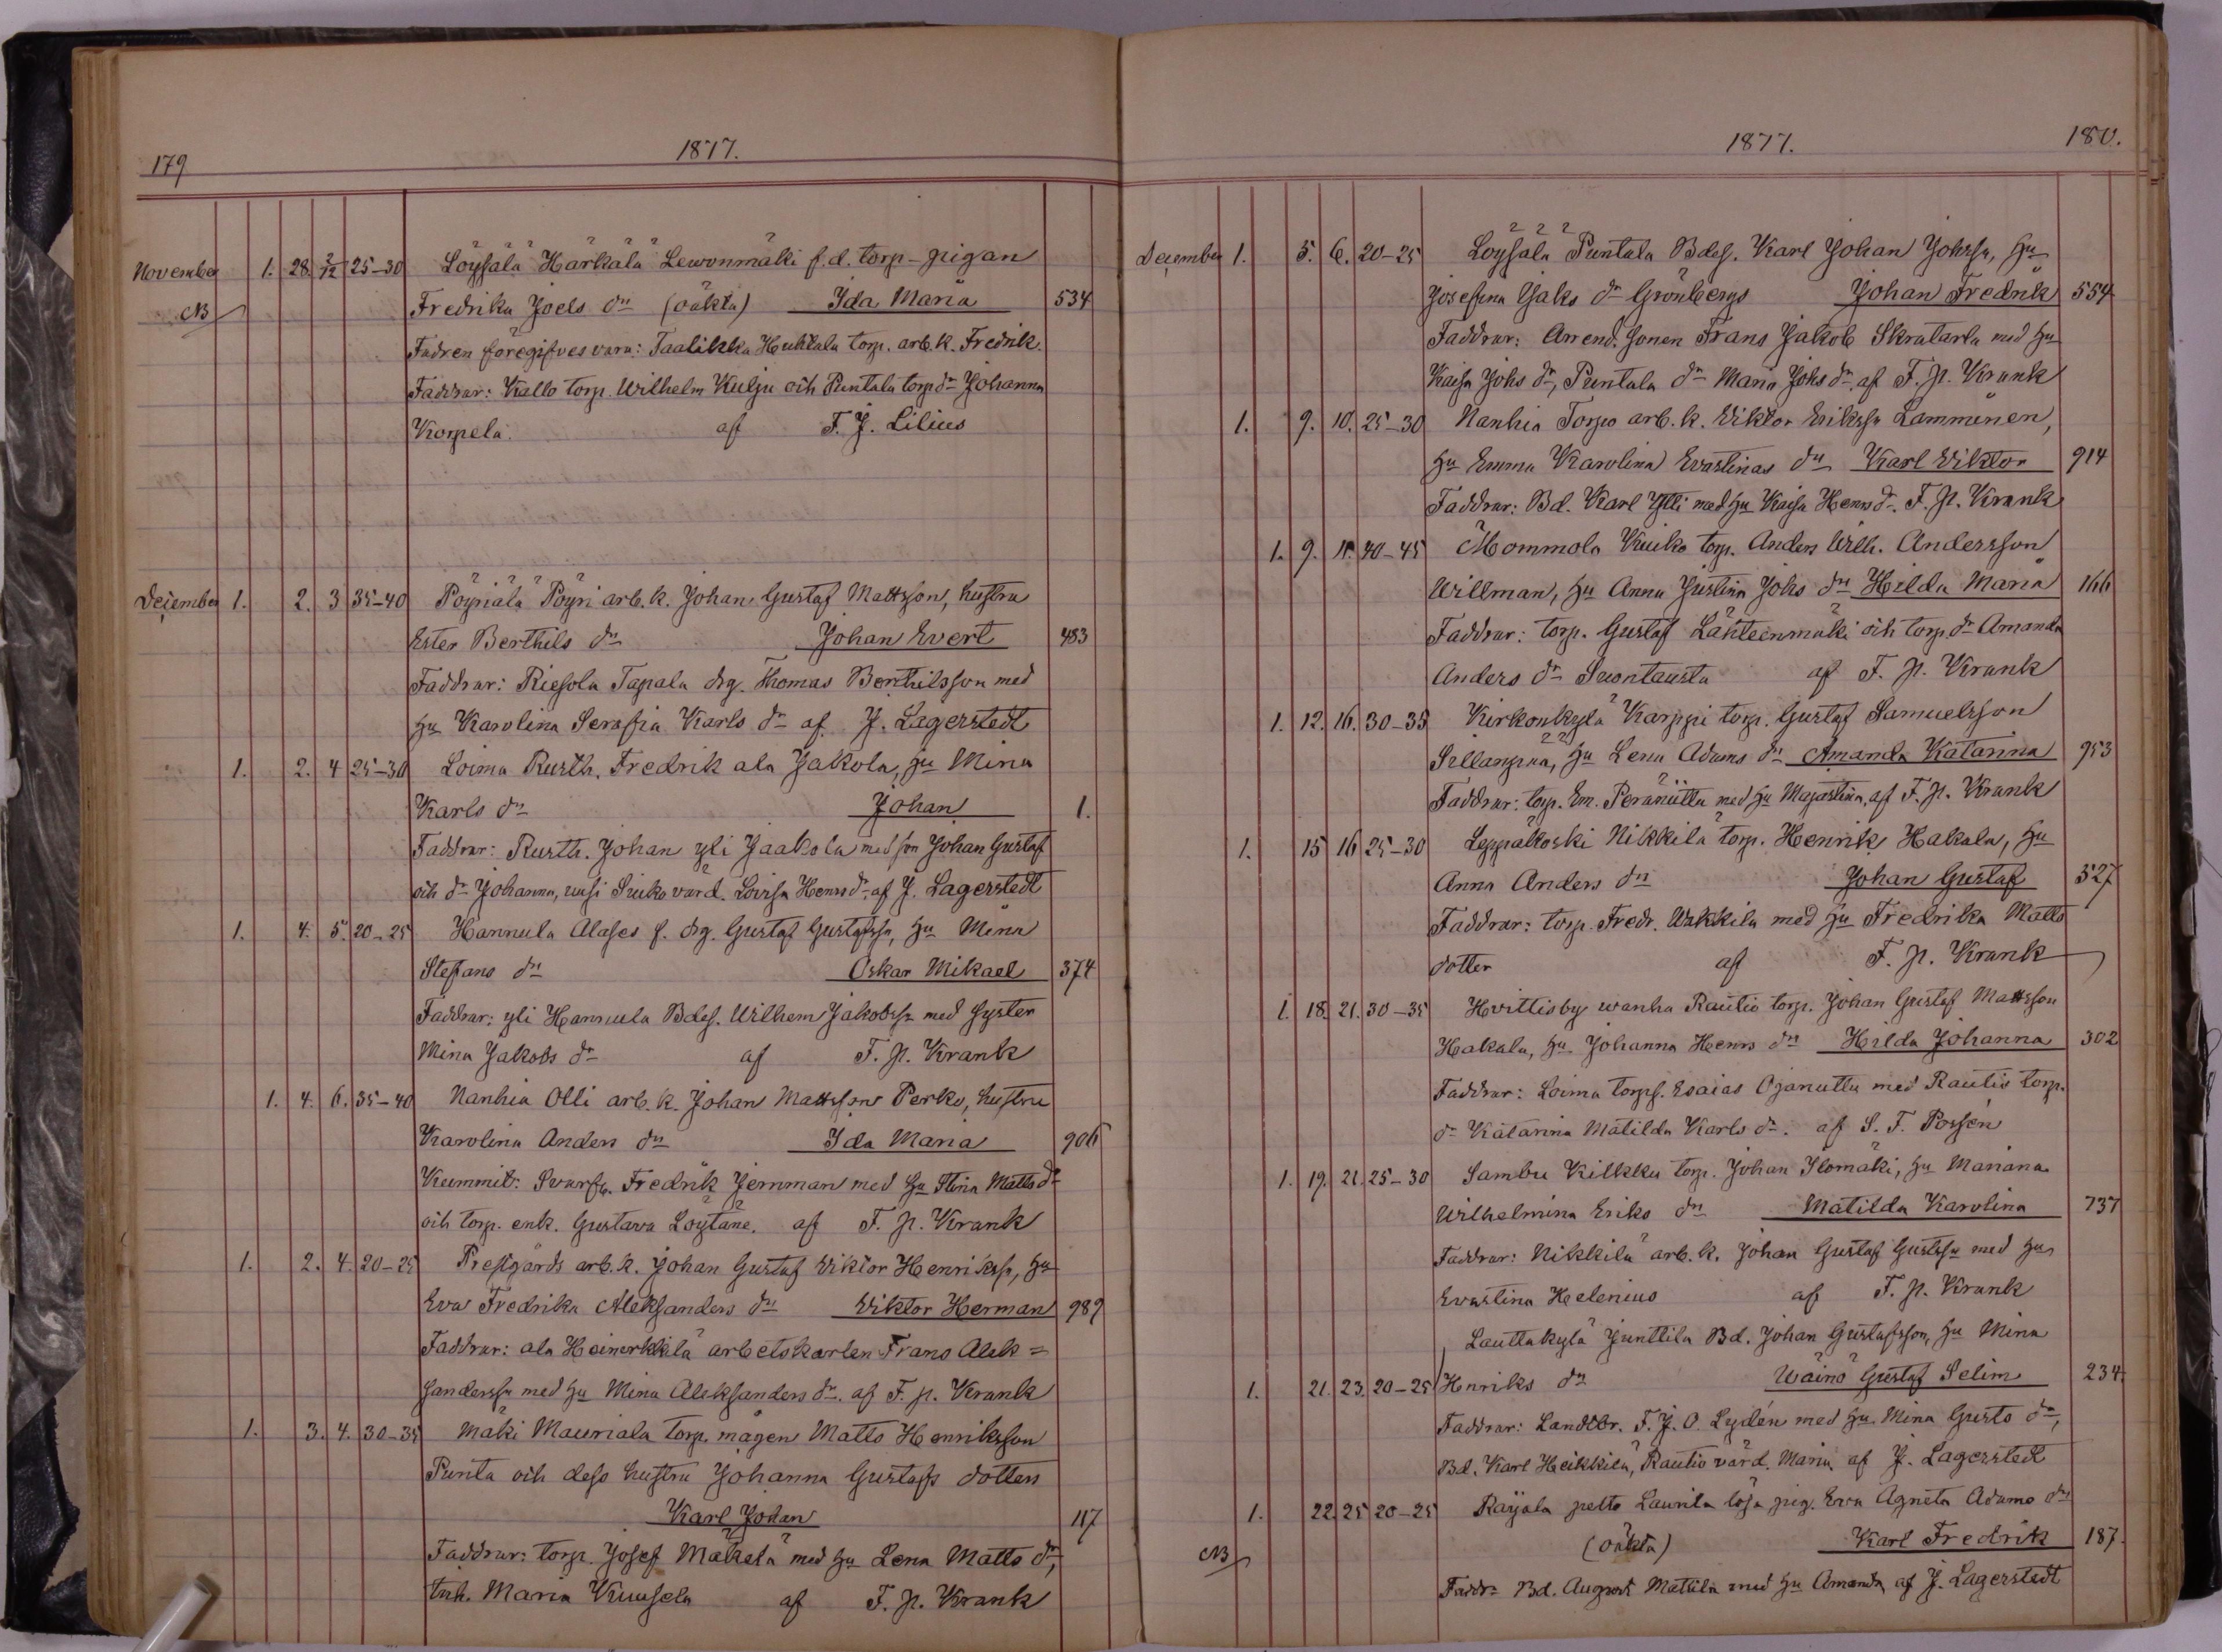 179
1877.
November 1. 28. 2/12 25–30 Löysälä Härkälä Lewonmäki f.d. torp-pigan
NB Fredrika Joels dr (oäkta) Ida Maria 534
Fadren föregifves vara: Taalikka Huhtala torp. arb.k. Fredrik.
Faddrar: Kallo torp. Wilhelm Kulju och Puntala torp dr Johanna
Korpela. af F. J. Lilius
December 1. 2. 3 35–40 Pöyriälä Pöyri arb.k. Johan Gustaf Mattsson, hustru
Ester Berthils dr Johan Evert 483
Faddrar: Riesola Tapala drg. Thomas Berthilsson med
hu Karolina Serafia Karls dr af J. Lagerstedt
1. 2. 4 25–30 Loima Rusth. Fredrik ala Jakola, hu Mina
Karls dr Johan 1.
Faddrar: Rusth. Johan yli Jaakola med son Johan Gustaf
och dr Johanna, uusi Suiko värd. Lovisa Henrs dr. af J. Lagerstedt
1. 4. 5. 20–25 Hannula Alases f. drg. Gustaf Gustafsn, hu Mina
Stefans dr Oskar Mikael 374
Faddrar: yli Hannula Bdes. Wilhem Jakobssn med syster
Mina Jakobs dr af F. P. Krank
1. 4. 6. 35–40 Nanhia Olli arb.k. Johan Mattsson Perko, hustru
Karolina Anders dr Ida Maria 906
Kummit: Svarfv. Fredrik Jernman med hu Stina Matts dr
och torp. enk. Gustava Löytäne. af F. P. Krank
1. 2. 4. 20–25 Prestgårds arb.k. Johan Gustaf Viktor Henrikss, hu
Eva Fredrika Aleksanders dr Viktor Herman 989
Faddrar: ala Heinerkkilä arbetskarlen Frans Alek=
sanderssn med hu Mina Aleksanders dr. af F. P. Krank
1. 3. 4. 30–35 Mäki Mauriala torp. mågen Matts Henriksson
Punta och dess hustru Johanna Gustafs dotters
Karl Johan 117
Faddrar: torp. Josef Mäkelä med hu Lena Matts dr,
inh. Maria Kuusela af F. P. Krank
1877.
180.
December 1. 5. 6. 20–25 Löysälä Puntala Bdes. Karl Johan Johssn, hu
Josefina Jaks dr Grönbergs Johan Fredrik 554
Faddrar: Arrend. sonen Frans Jakob Skratarla med hu
Kaisa Johs dr, Puntala dr Maria Johs dr. af F. P. Krank
1. 9. 10. 25–30 Nanhia Torpo arb.k. Viktor Erikssn Lamminen,
hu Emma Karolina Evastinas dr Karl Viktor 914
Faddrar: Bd. Karl Ylli med hu Kaisa Henrs dr. F. P. Krank
1. 9. 11. 40–45 Mommola Kuiko torp. Anders Wilh. Andersson
Willman, hu Anna Justina Johs dr Hilda Maria 166
Faddrar: torp. Gustaf Lähteenmäki och torp. dr Amanda
Anders dr Suontausta af F. P. Krank
1. 12. 16. 30–35 Kirkonkylä Karppi torp. Gustaf Samuelsson
Sillanpää, hu Lena Adams dr Amanda Katarina 953
Faddrar: torp. Em. Peräniittu med hu Majastina, af F. P. Krank
1. 15 16 25–30 Leppäkoski Nikkilä torp. Henrik Hakala, hu
Anna Anders dr Johan Gustaf 527
Faddrar: torp. Fredr. Wakkila med hu Fredrika Matts
dotter af F. P. Krank
1. 18. 21. 30–35 Hvittisby wanha Rautio torp. Johan Gustaf Mattsson
Hakala, hu Johanna Henrs dr Hilda Johanna 302
Faddrar: Loima torps. Esaias Ojanuttu med Rautio torp.
dr Katarina Matilda Karls dr. af S. F. Possén
1. 19. 21. 25–30 Sambu Kilkku torp. Johan Ylömäki, hu Mariana
Wilhelmina Eriks dr Matilda Karolina 737
Faddrar: Nikkilä arb.k. Johan Gustaf Gustfsn med hu
Evastina Helenius af F. P. Krank
Lauttakylä Junttila Bd. Johan Gustafsson, hu Mina
1. 21. 23. 20–25 Henriks dr Wäinö Gustaf Selim 234.
Faddrar: Landtbr. F. J. O. Lydén med hu. Mina Gusts dr,
Bd. Karl Heikkilä, Rautio värd. Maria af J. Lagerstedt
1. 22 25 20–25 Raijala petto Laurila lösa pig. Eva Agneta Adams dr
NB (oäkta) Karl Fredrik 187.
Faddr= Bd. August Mattila med hu Amanda af J. Lagerstedt